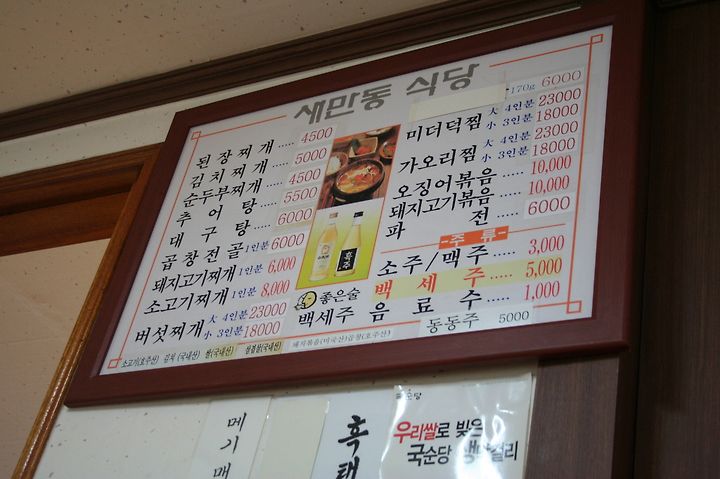 새만동 식당
된장찌개 ..... 4500
김치찌개 ..... 5000
순두부찌개 ..... 4500
추어탕 ..... 5500
대구탕 ..... 6000
곱창전골 1인분 6000
돼지고기찌개 1인분 6,000
소고기찌개 1인분 8,000
버섯찌개 大 4인분 23000
小 3인분 18000
-170g 6000
미더덕찜 大 4인분 23000
小 3인분 18000
가오리찜 大 4인분 23000
小 3인분 18000
오징어볶음 ..... 10,000
돼지고기볶음 ..... 10,000
파전 ..... 6000
-주류-
소주/맥주 ..... 3,000
백세주 ..... 5,000
음료수 ..... 1,000
동동주 5000
좋은술
백세주
흑주
소고기(호주산) 김치(국내산) 쌀(국내산) 찹쌀(국내산) 돼지볶음(미국산)곱창(호주산)
메기매
흑태
국순당
우리쌀로 빚은
국순당 생막걸리